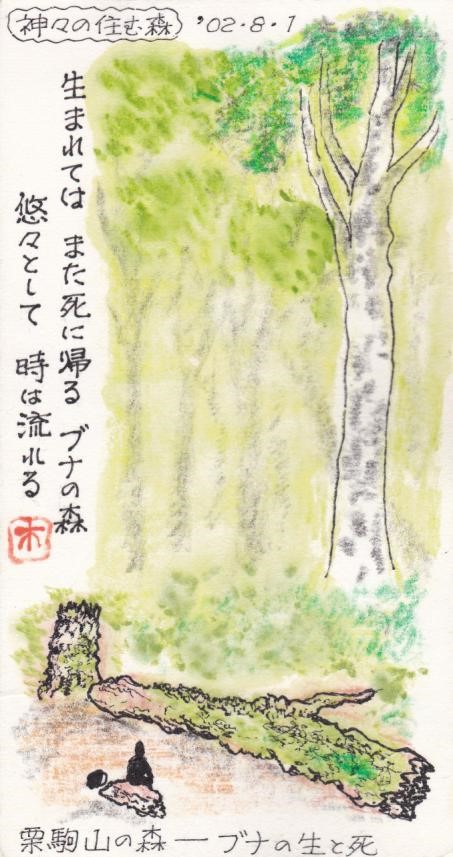 神々の住む森 '02.8.1
生まれては また死に帰る ブナの森
悠々として 時は流れる
木
栗駒山の森 — ブナの生と死